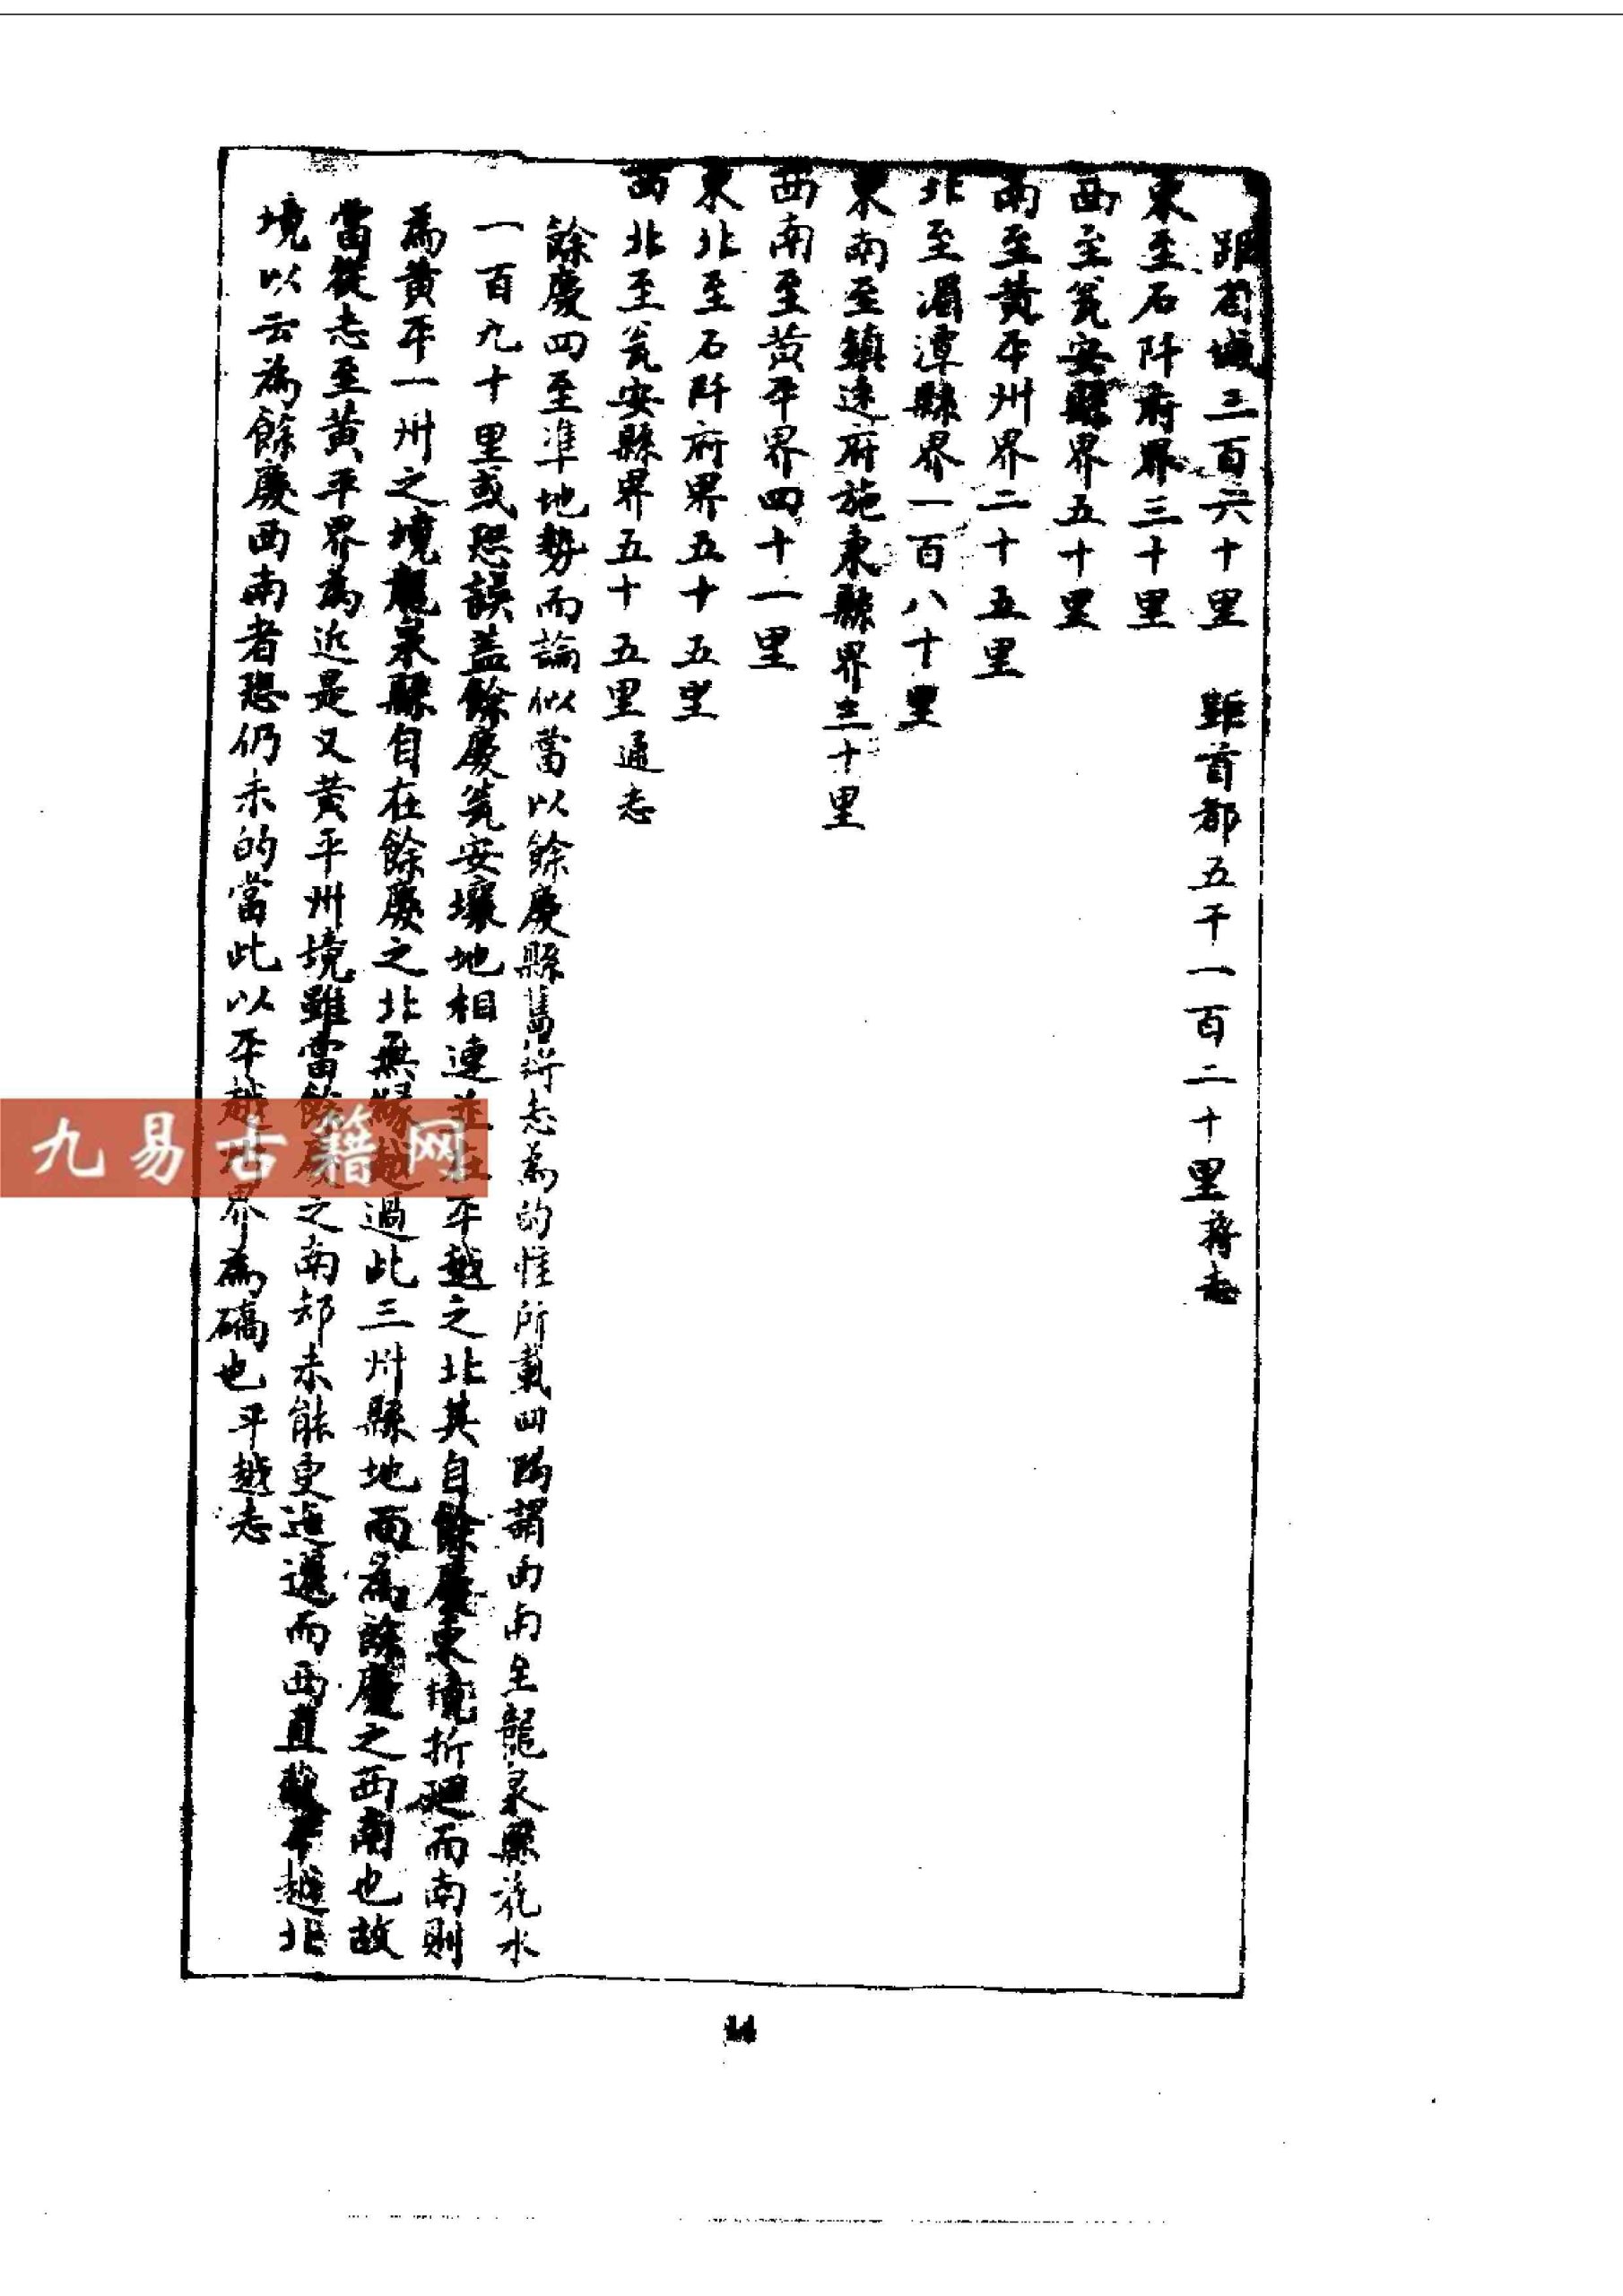 距省城三百六十里　距首都五千一百二十里蔣志
東至石阡府界三十里
西至瓮安縣界五十里
南至黃平州界二十五里
北至湄潭縣界一百八十里
東南至鎮遠府施秉縣界三十里
西南至黃平界四十一里
東北至石阡府界五十五里
西北至瓮安縣界五十五里通志
餘慶四至準地勢而論似當以餘慶縣舊蔣志為的惟所載四隅謂西南至龍泉縣花水
一百九十里或恐誤盖餘慶瓮安壤地相連並在平越之北其自餘慶東境折迴而南則
為黃平一州之境龍泉縣自在餘慶之北無緣越過此三州縣地而為餘慶之西南也故
當從志至黃平界為近是又黃平州境雖當餘慶之南却未能更迤邐而西直截平越北
境以云為餘慶西南者恐仍未的當此以平越北界為碻也平越志
14
九易古籍网